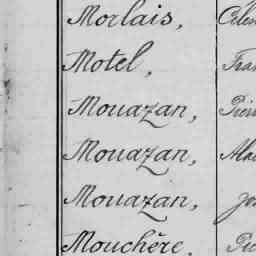 Morlais,
Motel,
Mouazan,
Mouazan,
Mouazan,
Mouchère,